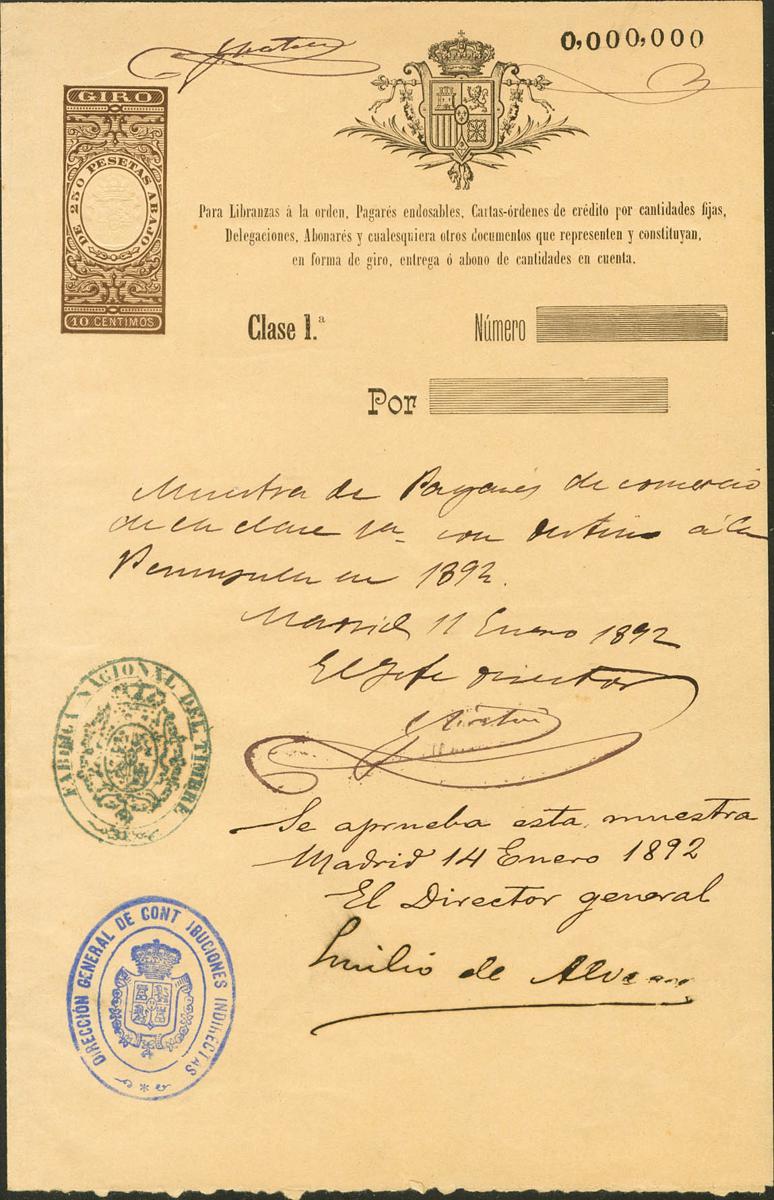 0,000,000
GIRO
DE 250 PESETAS ABAJO
10 CENTIMOS
Para Libranzas á la orden, Pagarés endosables, Cartas-órdenes de crédito por cantidades fijas,
Delegaciones, Abonarés y cualesquiera otros documentos que representen y constituyan,
en forma de giro, entrega ó abono de cantidades en cuenta.
Clase 1.ª
Número
Por
Muestra de Pagarés de comercio
de la clase 1a con destino á la
Peninsula en 1892.
Madrid 11 Enero 1892
El Jefe Director
FABRICA NACIONAL DEL TIMBRE
Se aprueba esta muestra
Madrid 14 Enero 1892
El Director general
Emilio de
DIRECCIÓN GENERAL DE CONT IBUCIONES INDIRECTAS